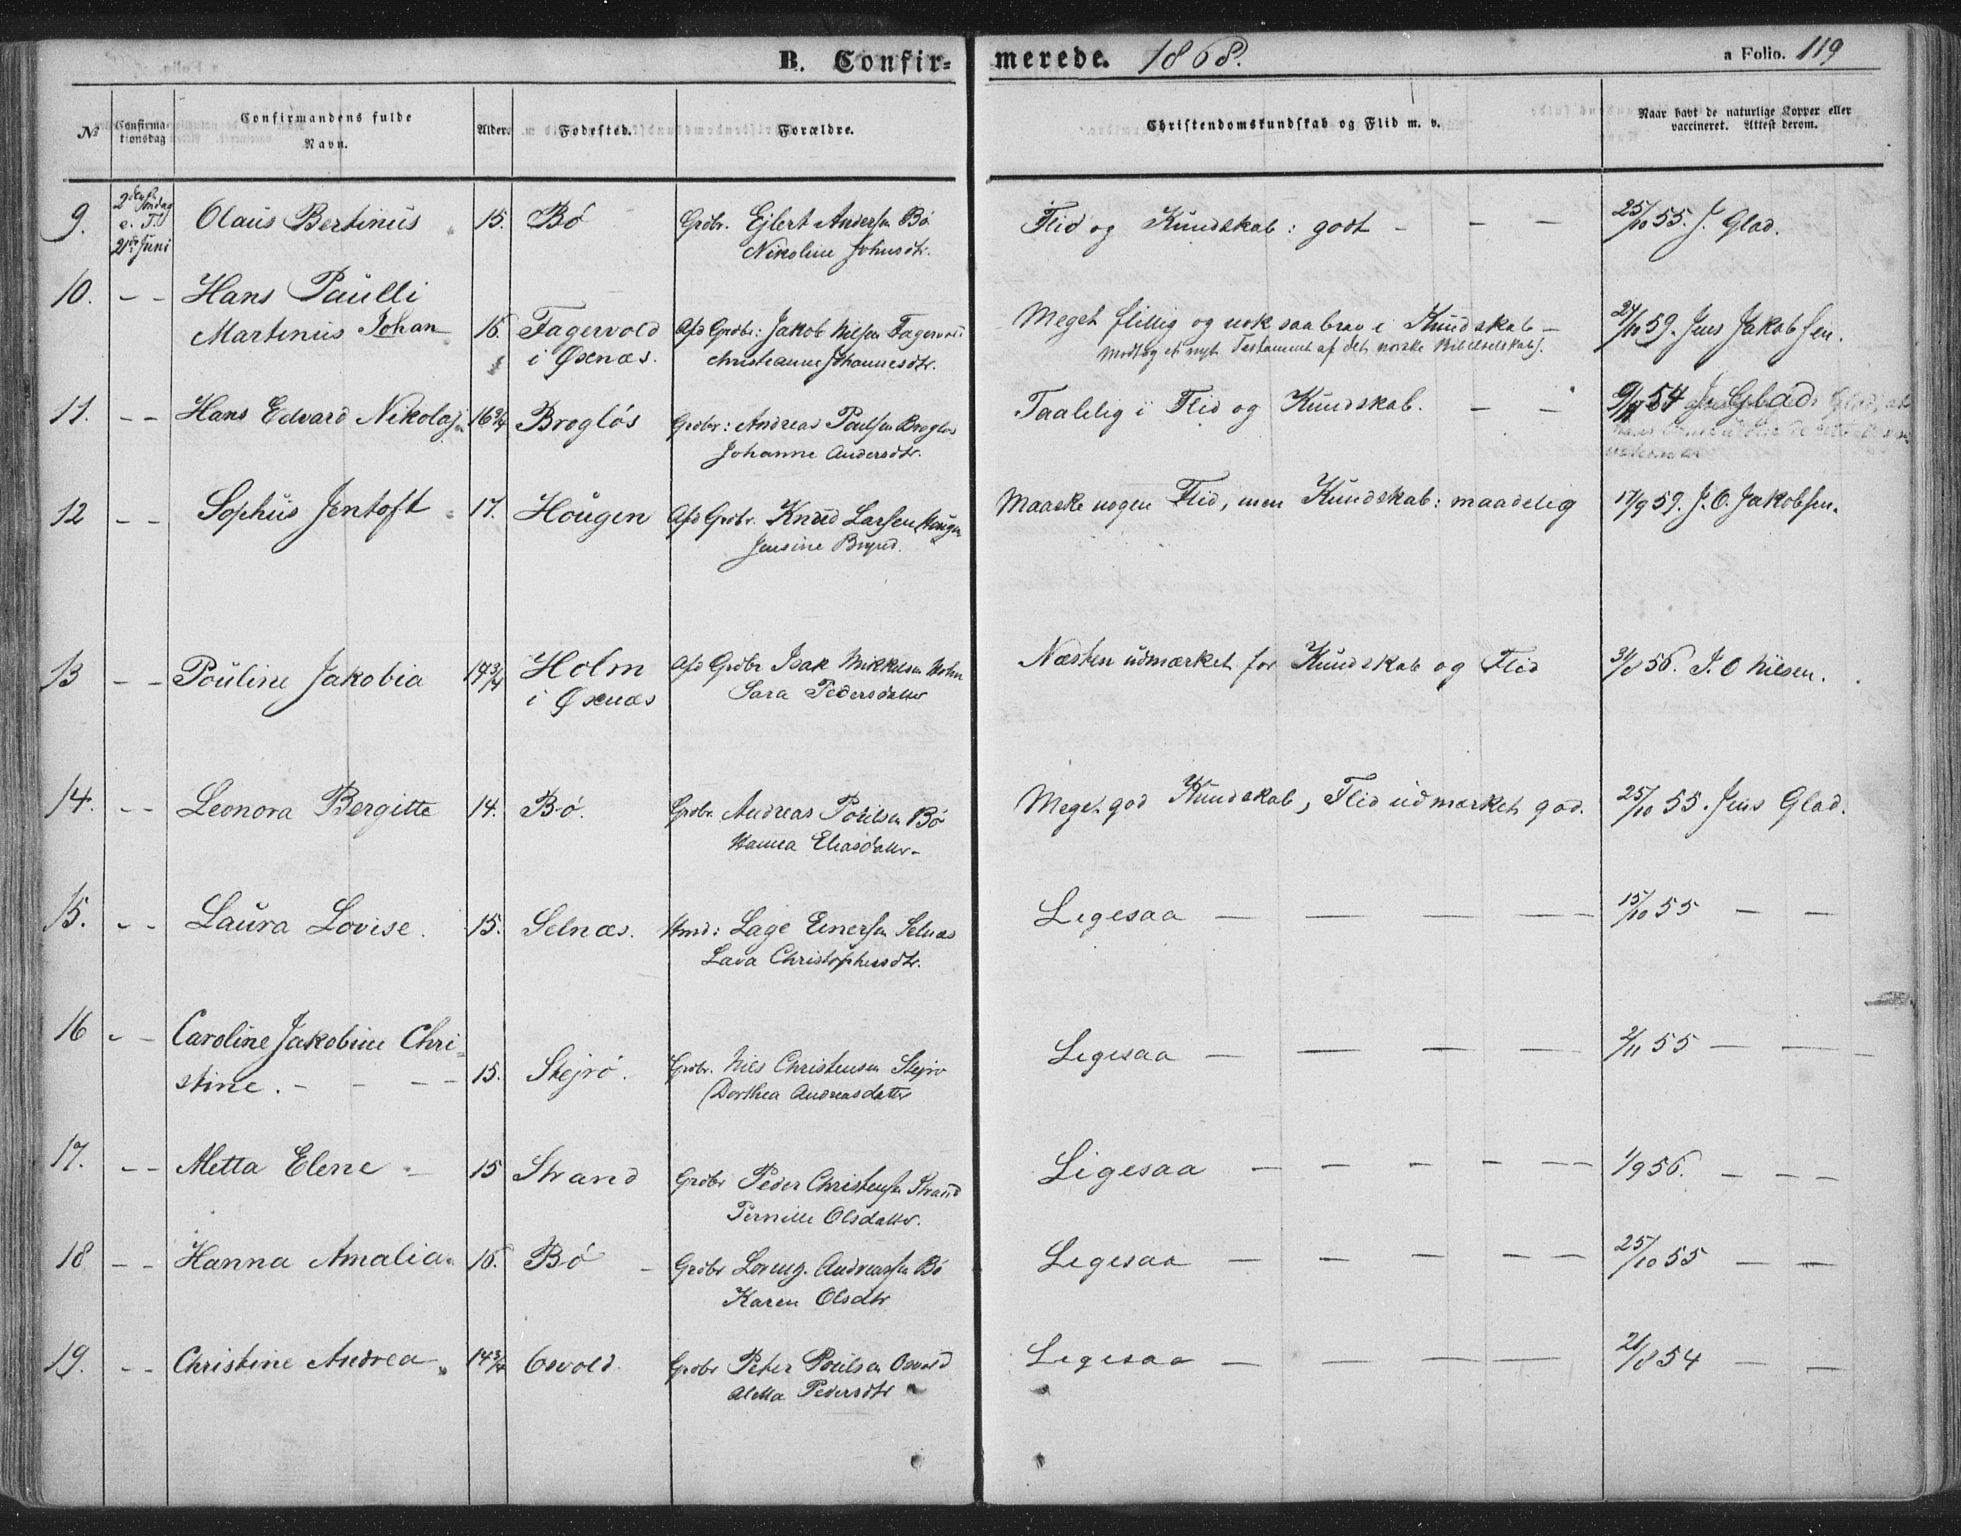 B. Confir- merede. 1868. a Folio. 119
No Confirma- tionsdag Confirmandens fulde Navn. Alder. Fødested. Forældre. Christendomskundskab og Flid m. v. Naar havt de naturlige Kopper eller vaccineret. Attest derom.
9. 2den Søndag e. Tr. 21de Juni Olaus Bertinus 15. Bö Grdbr. Ejlert Andersen Bö Flid og Kundskab: godt - - - 25/10 55. J. Glad.
Nikoline Johnsdtr.
10. - - Hans Paulli
Martinus Johan 16. Fagervold Afd Grdbr: Jakob Nilsen Fagervold Meget flittig og nok saa brav i Kundskab - 24/10 59. Jens Jakobsen.
i Öxnæs. Christianne Johannesdtr. Modtog et nyt Testament af det norske Bibelselskab.
11. - - Hans Edvard Nikolaj 16 3/4 Broglös Grdbr: Andreas Poulsen Broglös Taalelig i Flid og Kundskab. - - 54 J. Glad
Johanne Andersdtr.
12 - - Sophus Jentoft 17. Hougen Afd Grdbr. Knud Larsen Hougen Maaske nogen Flid, men Kundskab: maadelig 17/9 59. J. O. Jakobsen.
Jensine
13 - - Pouline Jakobia 14 3/4 Holm Afd Grdbr Isak Mikkelsen Holm Næsten udmærket for Kundskab og Flid 31/8 56. J. O Nilsen.
i Öxnæs Sara Pedersdatter
14. - - Leonora Bergitte 14. Bö. Grdbr. Andreas Poulsen Bö Meget god Kundskab, Flid udmærket god. 25/10 55. Jens Glad.
Hanna Eliasdatter
15. - - Laura Lovise. 15. Selnæs. Hmd: Lage Einersen Selnæs Ligesaa - - - - - 15/10 55 - -
Lava Christophersdtr.
16 - - Caroline Jakobine Chri-
stine. - - - - 15. Skejrö. Grdbr. Nils Christensen Skejrö Ligesaa - - - - - 2/11 55 - - -
Dorthea Andreasdatter
17. - - Metta Elene 15 Strand Grdbr Peder Christensen Strand Ligesaa - - - - - - 1/9 56. - - -
Pernille Olsdatter.
18 - - Hanna Amalia 16. Bö - Grdbr Lorenz Andreassen Bö Ligesaa - - - - - 25/10 55 - -
Karen Olsdtr
19. - - Christine Andrea 14 3/4 Osvold. Grdbr Peter Poulsen Osvold Ligesaa - - - - - 21/8 54 - -
Aletta Pedersdtr